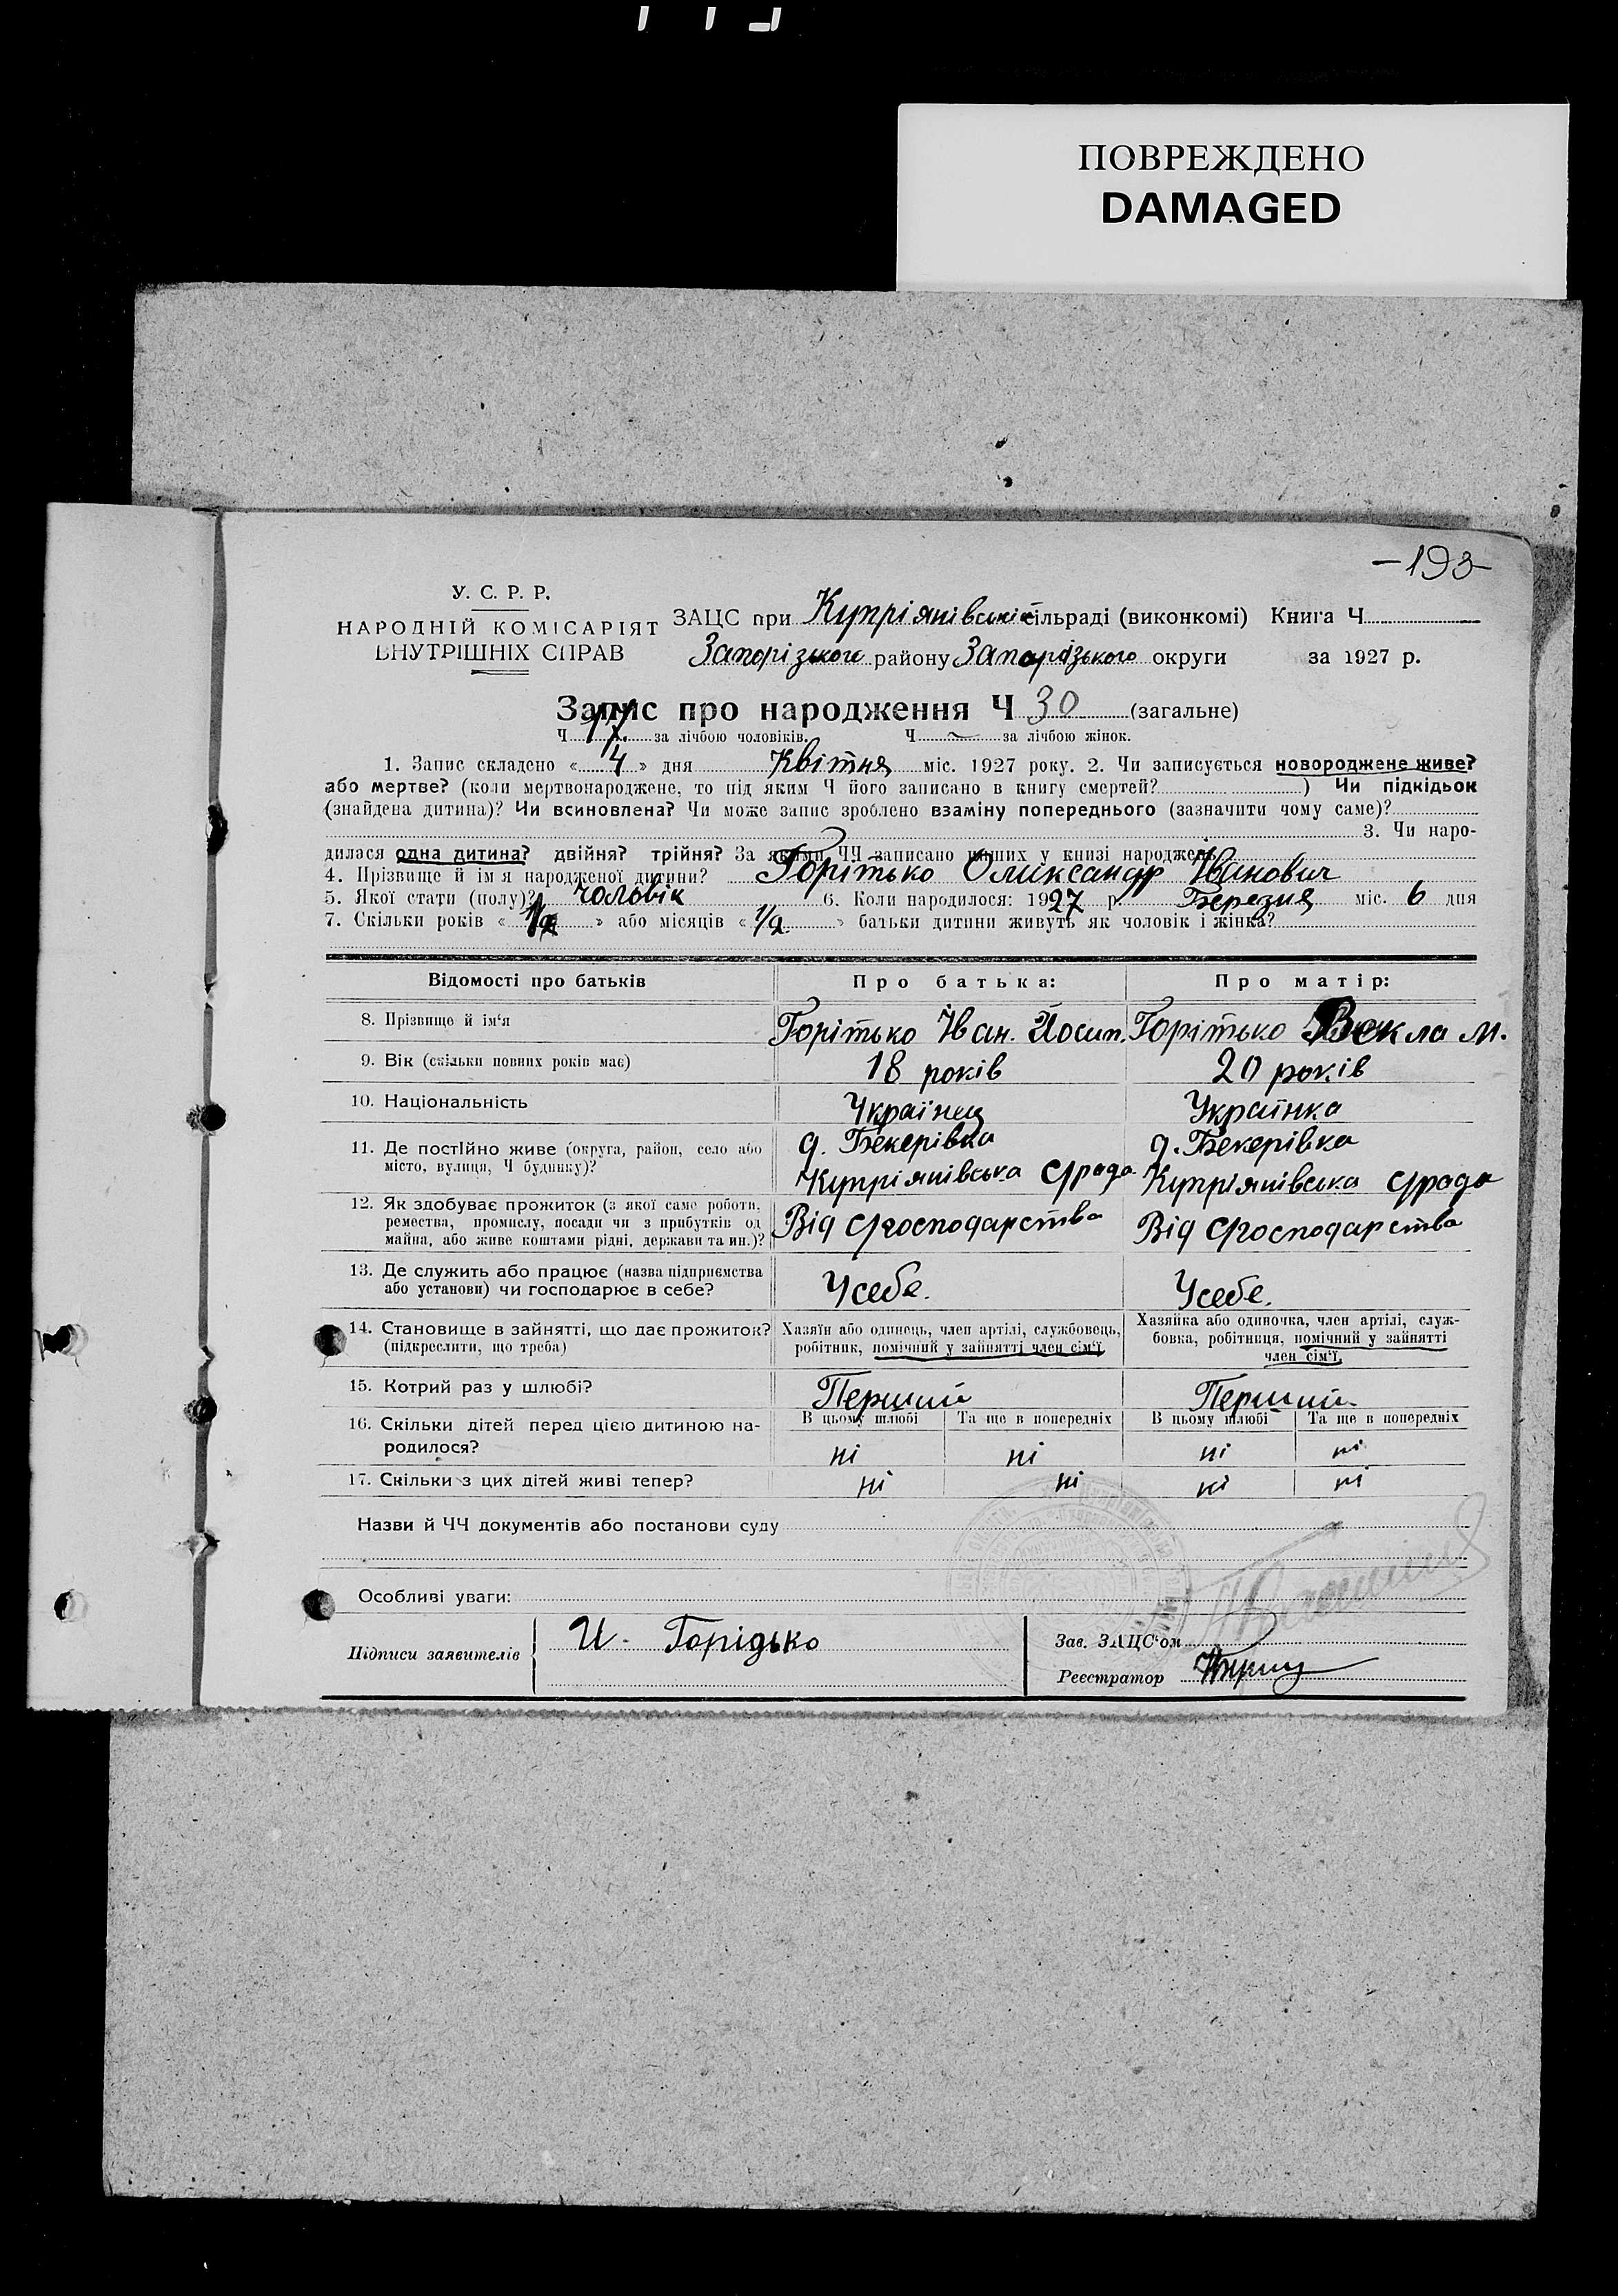 ПОВРЕЖДЕНО
DAMAGED
-193-
У. С. Р. Р.
НАРОДНІЙ КОМІСАРІЯТ
ВНУТРІШНІХ СПРАВ
ЗАЦС при Купріянівській сільраді (виконкомі) Книга Ч
Запорізького району Запорізького округи за 1927 р.
Запис про народження Ч 30 (загальне)
Ч 17 за лічбою чоловіків. Ч за лічбою жінок.
1. Запис складено « 4 » дня Квітня міс. 1927 року. 2. Чи записується новороджене живе?
або мертве? (коли мертвонароджене, то під яким Ч його записано в книгу смертей? ) Чи підкідьок
(знайдена дитина)? Чи всиновлена? Чи може запис зроблено взаміну попереднього (зазначити чому саме)?
3. Чи наро-
дилася одна дитина? двійня? трійня? За якими ЧЧ записано інших у книзі народжень
4. Прізвище й ім'я народженої дитини? Горітько Олександр Іванович
5. Якої стати (полу)? чоловік 6. Коли народилося: 1927 р. Березня міс. 6 дня
7. Скільки років « » або місяців « 1/2 » батьки дитини живуть як чоловік і жінка?
Відомості про батьків Про батька: Про матір:
8. Прізвище й ім'я Горітько Іван. Йосип. Горітько Векла М.
9. Вік (скільки повних років має) 18 років 20 років
10. Національність Українец Українка
11. Де постійно живе (округа, район, село або місто, вулиця, Ч будинку)? д. Бекерівка д. Бекерівка
Купріянівська С/рада Купріянівська С/рада
12. Як здобуває прожиток (з якої саме роботи,
ремества, промислу, посади чи з прибутків од
майна, або живе коштами рідні, держави та ин.)? Від С/господарства Від С/господарства
13. Де служить або працює (назва підприємства
або установи) чи господарює в себе? Усебе. Усебе.
14. Становище в зайнятті, що дає прожиток?
(підкреслити, що треба)
Хазяїн або одинець, член артілі, службовець,
робітник, помічний у зайнятті член сім'ї.
Хазяйка або одиночка, член артілі, служ-
бовка, робітниця, помічний у зайнятті
член сім'ї.
15. Котрий раз у шлюбі? Перший Перший
16. Скільки дітей перед цією дитиною на-
родилося?
В цьому шлюбі Та ще в попередніх В цьому шлюбі Та ще в попередніх
ні ні ні ні
17. Скільки з цих дітей живі тепер? ні ні ні ні
Назви й ЧЧ документів або постанови суду
Особливі уваги:
Підписи заявителів И. Горідько
Зав. ЗАЦС'ом
Реєстратор